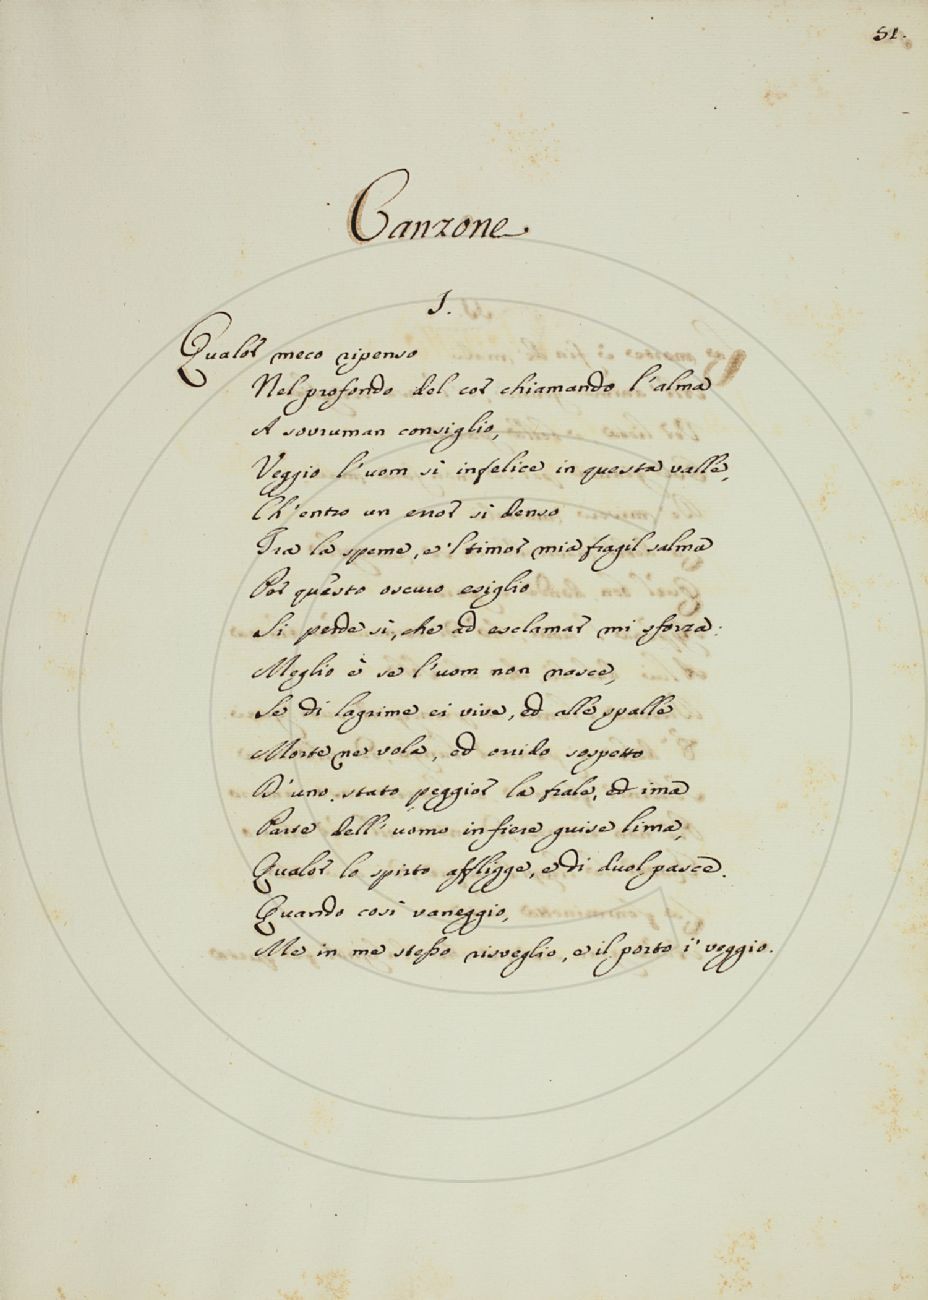 51.
Canzone.
I.
Qualor meco ripenso
Nel profondo del cor chiamando l'alma
A sovruman consiglio,
Veggio l'uom sì infelice in questa valle,
Ch'entro un error sì denso
Tra la speme, e 'l timor mia fragil salma
Per questo oscuro esiglio
Si perde sì, che ad esclamar mi sforza:
Meglio è se l'uom non nasce,
Se di lagrime ei vive, ed alle spalle
Morte ne vola, ed orrido sospetto
D'uno stato peggior la frale, ed ima
Parte dell'uomo in fiere guise lima,
Qualor lo spirto affligge, e di duol pasce.
Quando così vaneggio,
Me in me stesso risveglio, e il porto i' veggio.